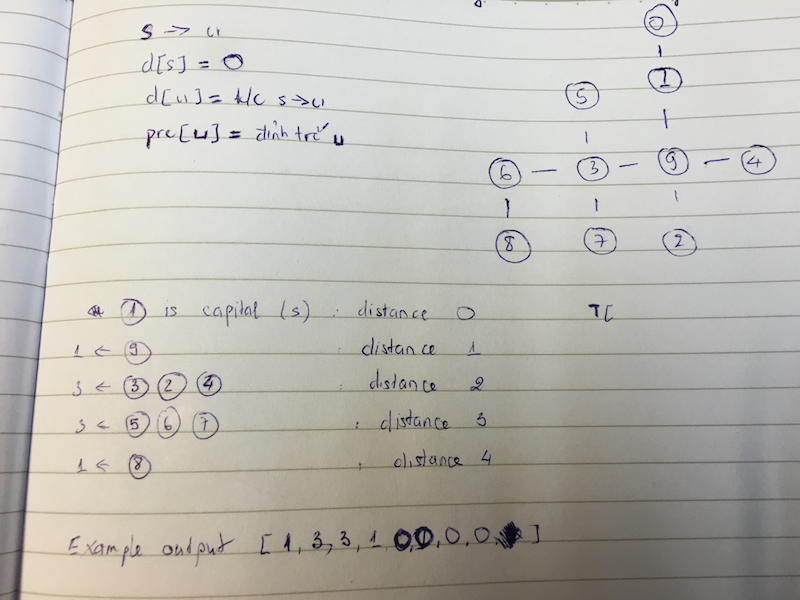 s → u
d[s] = 0
d[u] = k/c s → u
pre[u] = đỉnh trc u
0
1
5
6 3 9 4
8 7 2
1 is capital (s) : distance 0 T[
1 ← 9 : distance 1
3 ← 3 2 4 : distance 2
3 ← 5 6 7 : distance 3
1 ← 8 : distance 4
Example output [ 1, 3, 3, 1 0, 0, 0, 0, ]